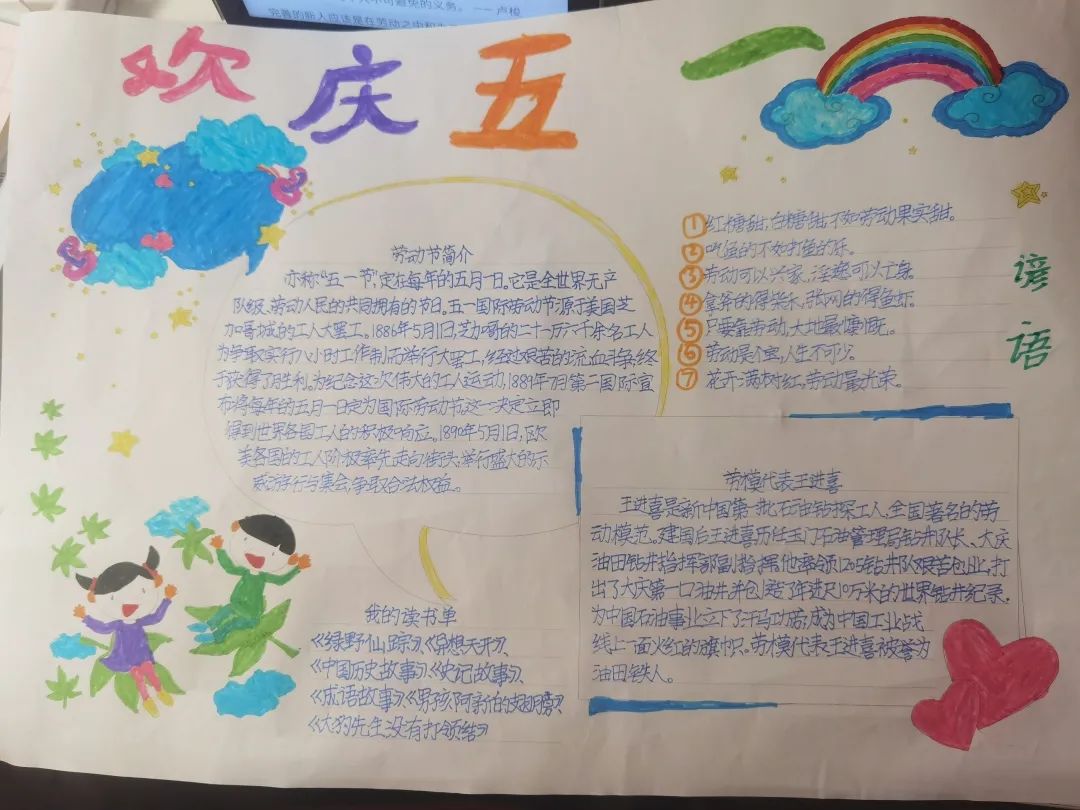 完善的新人应该是在劳动之中和
不可避免的义务。——卢梭
欢庆五一
劳动节简介
亦称“五一节”,定在每年的五月一日。它是全世界无产
队级、劳动人民的共同拥有的节日。五一国际劳动节源于美国芝
加哥城的工人大罢工。1886年5月1日,芝加哥的二十一万六千余名工人
为争取实行八小时工作制而举行大罢工,经过艰苦的流血斗争,终
于获得了胜利。为纪念这次伟大的工人运动,1889年7月第二国际宣
布将每年的五月一日定为国际劳动节。这一决定立即
得到世界各国工人的积极响应。1890年5月1日,欧
美各国的工人阶极率先走向街头,举行盛大的示
威游行与集会,争取合法权益。
谚语
①红糖甜,白糖甜,不如劳动果实甜。
②吃鱼的不如打鱼的乐。
③劳动可以兴家,淫逸可以亡身。
④拿斧的得柴禾,张网的得鱼虾。
⑤只要靠劳动,大地最慷慨。
⑥劳动是个宝,人生不可少。
⑦花开满树红,劳动最光荣。
劳模代表王进喜
王进喜是新中国第一批石油钻探工人,全国著名的劳
动模范。建国后王进喜历任玉门石油管理局钻井队长、大庆
油田钻井指挥部副指挥,他率领1205钻井队艰苦创业,打
出了大庆第一口油井,并创造了年进尺10万米的世界钻井纪录,
为中国石油事业立下了汗马功劳,成为中国工业战
线上一面火红的旗帜。劳模代表王进喜被誉为
油田铁人。
我的读书单
《绿野仙踪》、《异想天开》、
《中国历史故事》、《史记故事》、
《成语故事》、《男孩阿新的翅膀》、
《大狗先生,没有打领结》